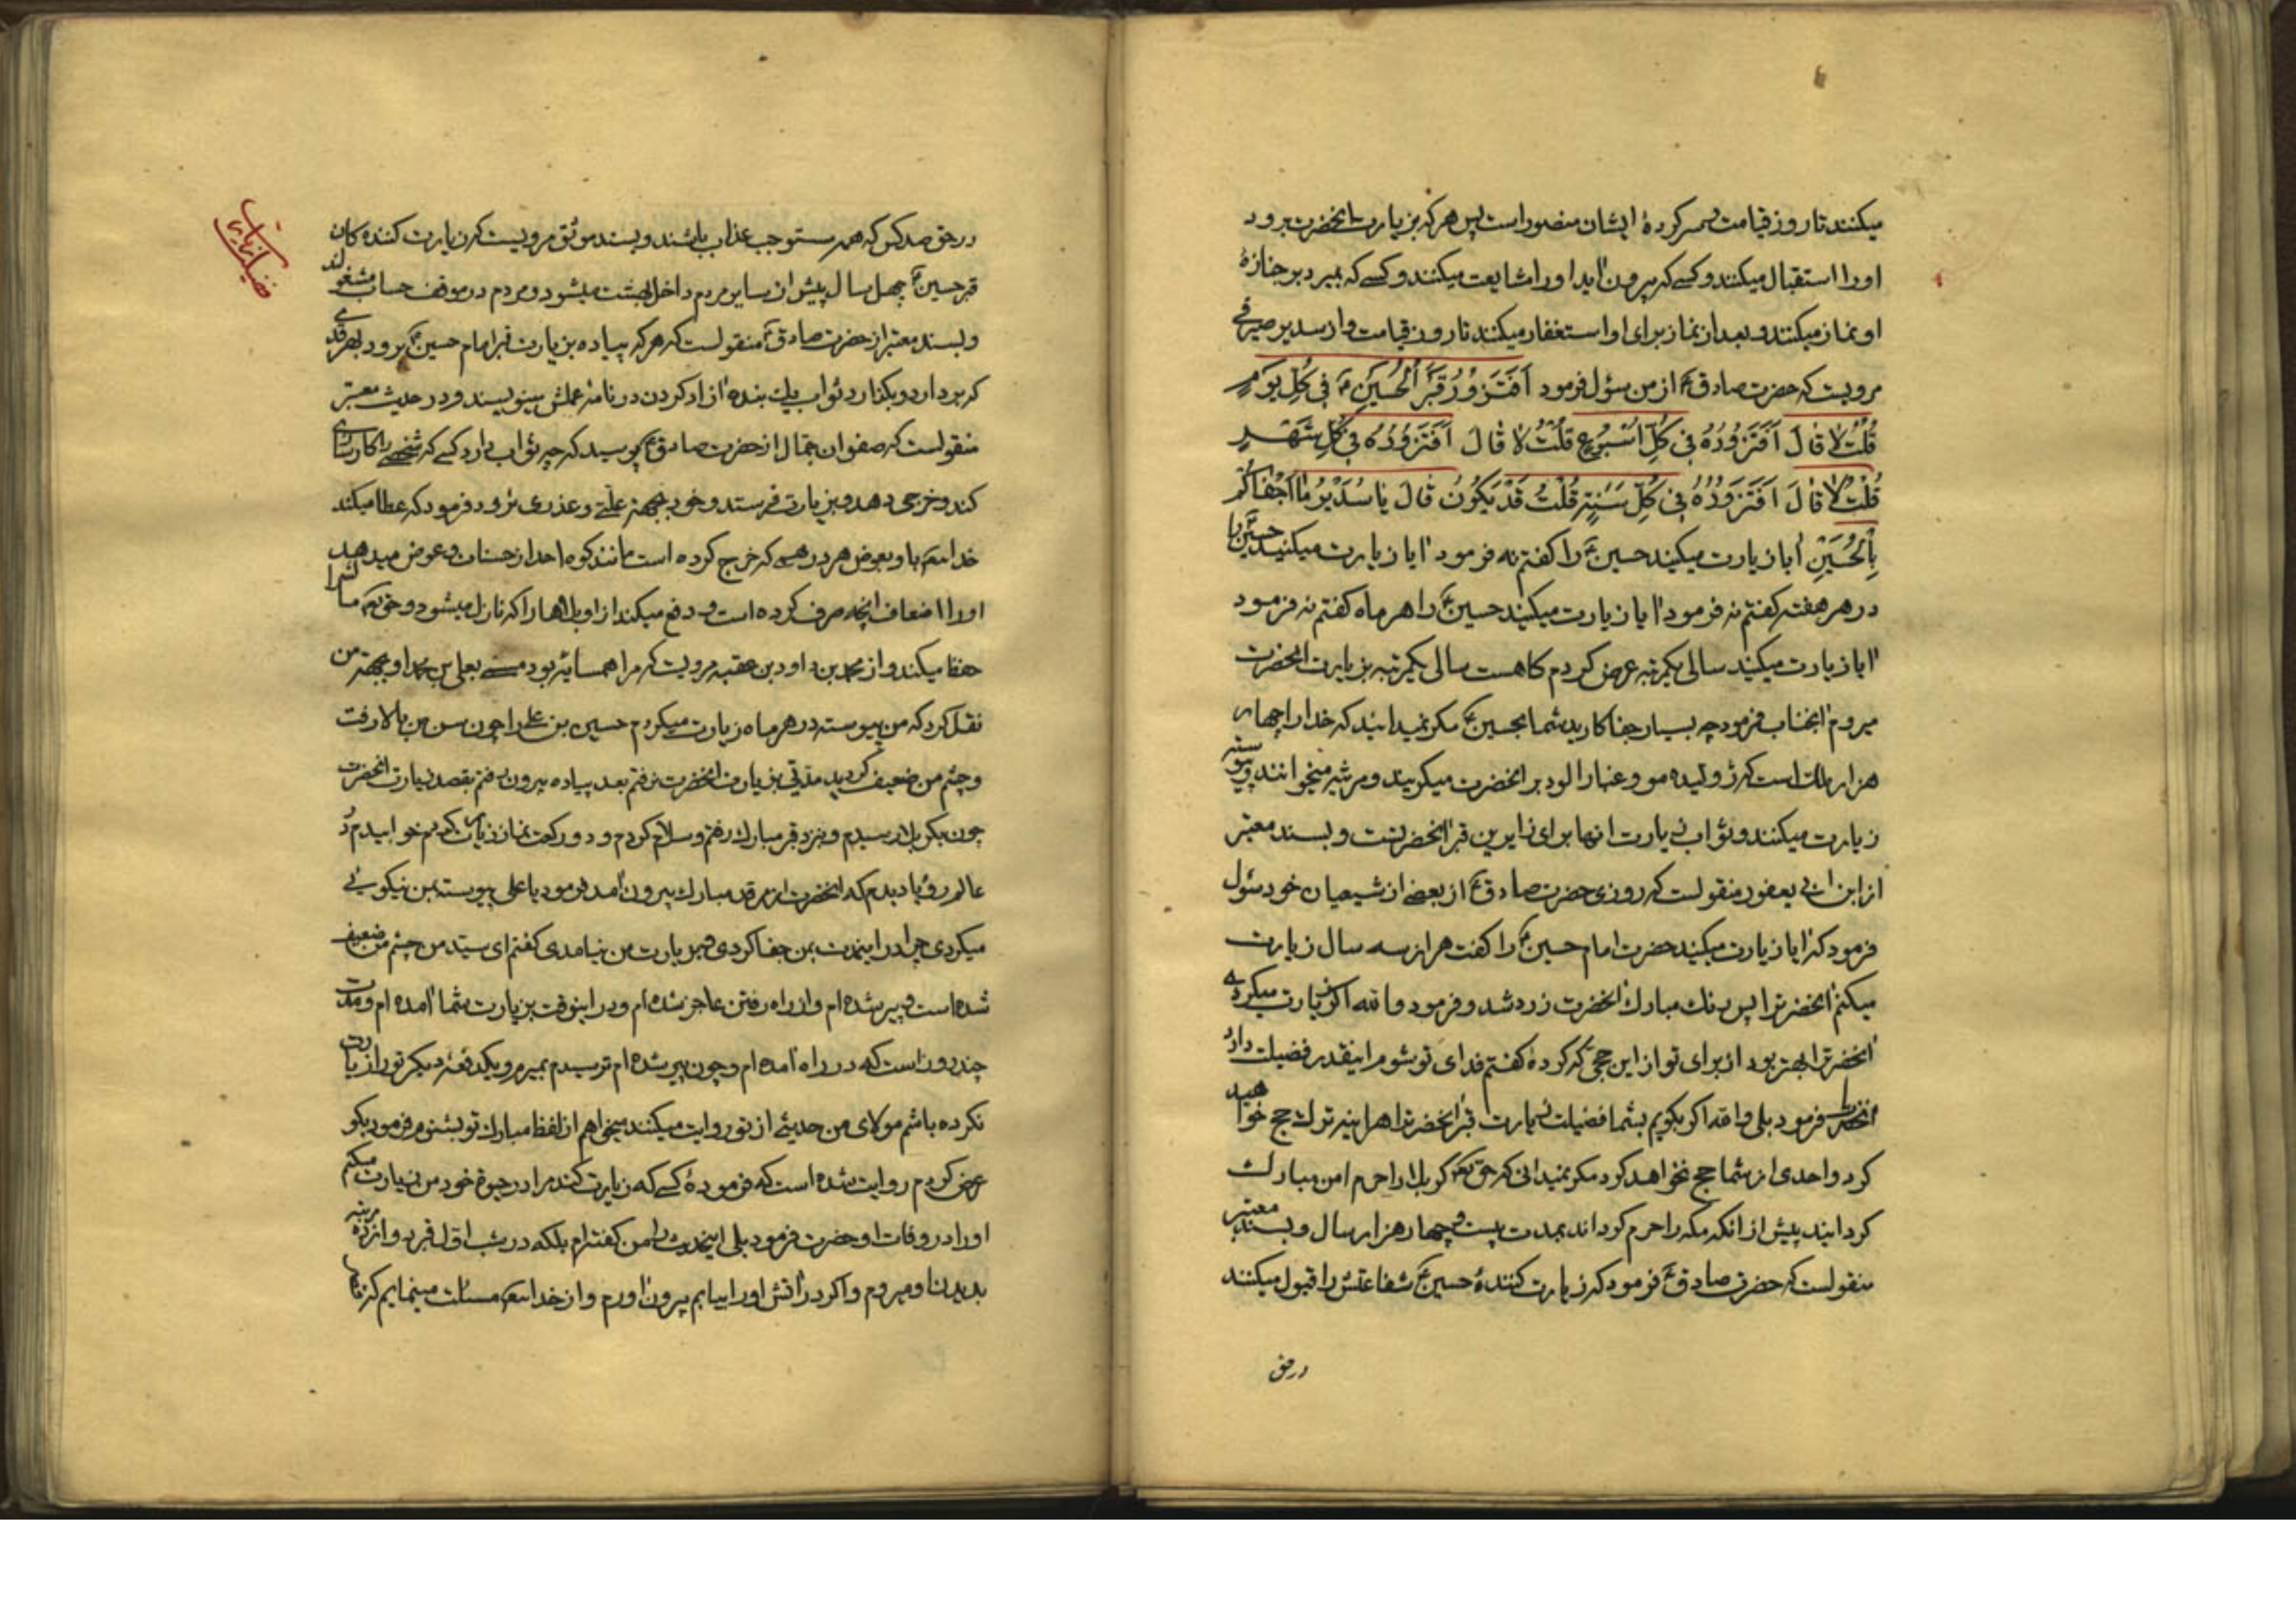 میکنند تا روز قیامت بسر کردهٔ ایشان منصور است پس هر که بزیارت انحضرت برود
اورا استقبال میکنند و کسے که بیرون آید اورا مشایعت میکنند و کسے که بمیرد بر جنازهٔ
او نماز میکنند و بعد از نماز برای او استغفار میکنند تا روز قیامت و از سدیر صیرفے
مرویست که حضرت صادق ع از من سؤل فرمود اَفَتَزُورُ قَبْرَ الْحُسَیْنِ ع فی کُلِّ یَوْمٍ
قُلْتُ لا قالَ اَفَتَزُورُهُ فی کُلِّ اُسْبُوعٍ قُلْتُ لا قالَ اَفَتَزُورُهُ فی کُلِّ شَهْرٍ
قُلْتُ لا قالَ اَفَتَزُورُهُ فی کُلِّ سَنَةٍ قُلْتُ قَدْ یَکُونُ قالَ یا سُدَیْرُ ما اَجْفاکُمْ
بِالْحُسَیْنِ آیا زیارت میکیند حسین ع را کفتم نه فرمود آیا زیارت میکنید حسین ع را
در هر هفته کفتم نه فرمود آیا زیارت میکیند حسین ع را هر ماه کفتم نه فرمود
آیا زیارت میکیند سالی یکمرتبه عرض کردم کاهست سالی یکمرتبه بزیارت انحضرت
میروم آنجناب فرمود چه بسیار جفا کارید شما بحسین ع مکر نمیدانید که خدا را چهار
هزار ملک است که ژولیده مو و غبار الود بر انحضرت میکریند و مرثیه میخوانند و پیوسته
زیارت میکنند و ثواب زیارت انها برای زایرین قبر آنحضرتست و بسند معتبر
از ابن ابی یعفور منقولست که روزی حضرت صادق ع از بعضے از شیعیان خود سئول
فرمود که آیا زیارت میکیند حضرت امام حسین ع را کفت هر از سه سال زیارت
میکنم آنحضرترا پس رنک مبارک انحضرت زرد شد و فرمود والله اکر زیارت میکردے
آنحضرترا بهتر بود از برای تو از این حجی که کردهٔ کفتم فدای تو شوم اینقدر فضیلت دارد
آنحضرت فرمود بلی والله اکر بکویم بشما فضیلت زیارت قبر آنحضرترا هر اینه ترک حج خواهید
کرد و احدی از شما حج نخواهد کرد مکر نمیدانی که حق تعه کربلا را حرم امن مبارک
کردانید پیش از انکه مکه را حرم کرداند بمدت بیست و چهار هزار سال و بسند معتبر
منقولست که حضرت صادق ع فرمود که زیارت کنندهٔ حسین ع شفاعتش را قبول میکنند
در حق
در حق صد کس که همه مستوجب عذاب باشند و بسند موثق مرویست که زیارت کننده کان
قبر حسین ع چهل سال پیش از سایر مردم داخل بهشت میشود و مردم در موقف حساب مشغولند
و بسند معتبر از حضرت صادق ع منقولست که هر که پیاده بزیارت قبر امام حسین ع برود بهر قدمے
که بردارد و بکذارد ثواب یک بنده آزاد کردن در نامهٔ عملش بینویسند و در حدیث معتبر
منقولست که صفوان جمال از حضرت صادق ع پرسید که چه ثواب دارد کسے که شخصے را کارسازی
کند و خرجی دهد و بزیارت فرستد و خود بجهة علّتی و عذری نرود فرمود که عطا میکند
خدا تعه باو بعوض هر درهمے که خرج کرده است مانند کوه احد از حسنات و عوض میدهد
اورا اضعاف انچه صرف کرده است و دفع میکند از او بلاها را که نازل میشود و حق تعه مالشرا
حفظ میکند و از محمد بن داود بن عقبه مرویست که مرا همسایه بود مسمے بعلی بن محمد او بجهة من
نقل کرد که من پیوسته در هر ماه زیارت میکردم حسین بن علی را چون سن من بالا رفت
و جثم من ضعیف کردید مدّتی بزیارت انحضرت نرفتم بعد پیاده بیرون رفتم بقصد زیارت انحضرت
چون بکربلا رسیدم و بنزد قبر مبارک رفتم و سلام کردم و دو رکعت نماز زیارت کردم خوابیدم در
عالم رؤیا دیدم که انحضرت از مرقد مبارک بیرون آمد فرمود یا علی پیوسته بمن نیکویی
میکردی چرا در اینمدت بمن جفا کردی و بزیارت من نیامدی کفتم ای سیّد من جثم من ضعیف
شده است و پیر شده ام و از راه رفتن عاجز شده ام و در اینوقت بزیارت شما آمده ام و مدت
چند روز است که در راه آمده ام و چون پیر شده ام ترسیدم بمیرم و یکدفعهٔ دیکر تورا زیارت
نکرده باشم مولای من حدیثے از تو روایت میکنند میخواهم از لفظ مبارک تو بشنوم فرمود بکو
عرض کردم روایت شده است که فرمودهٔ کسے که زیارت کند مرا در حیوة خود من زیارت میکنم
اورا در وفات او حضرت فرمود بلی اینحدیث را من کفته‌ام بلکه در شب اوّل قبر
بدیدن او میروم و اکر در آتش اورا بیابم بیرون آورم و از خدا تعه مسئلت مینمایم که